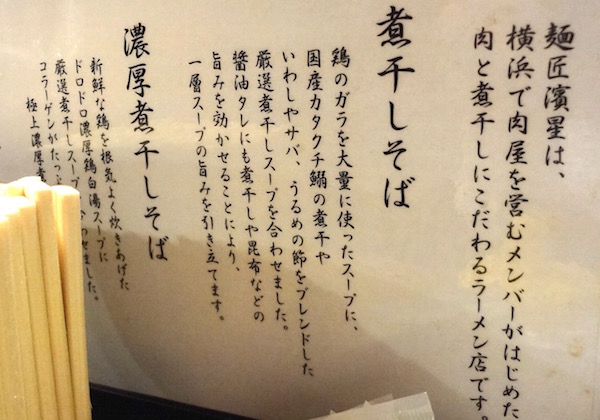 麺匠濱星は、
横浜で肉屋を営むメンバーがはじめた
肉と煮干しにこだわるラーメン店です。
煮干しそば
鶏のガラを大量に使ったスープに、
国産カタクチ鰯の煮干や
いわしやサバ、うるめの節をブレンドした
厳選煮干しスープを合わせました。
醤油タレにも煮干しや昆布などの
旨みを効かせることにより、
一層スープの旨みを引き立てます。
濃厚煮干しそば
新鮮な鶏を根気よく炊きあげた
ドロドロ濃厚鶏白湯スープに
厳選煮干しスープ 合わせました。
コラーゲンがたっ
極上濃厚煮